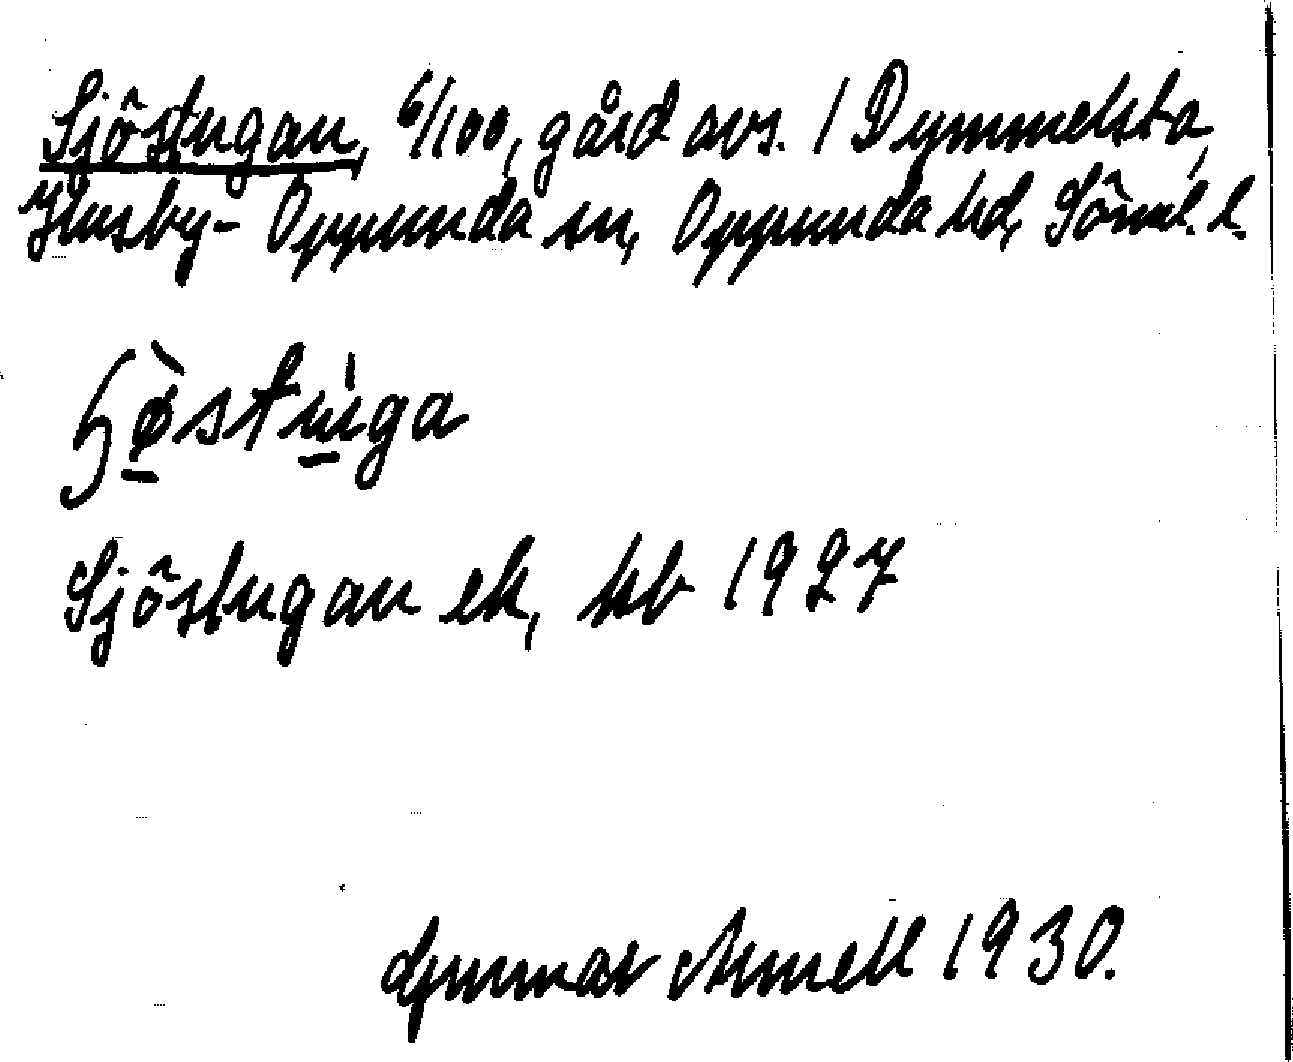 Sjöstugan, 6/100, gård avs. / Dymmelsta,
Husby-Oppunda sn, Oppunda hd, Söml. l.
Sjöstugan ek, kb 1927
Gunnar Armell 1930.